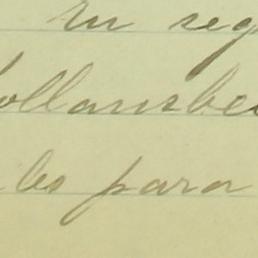 En seg
ollansbe
les para